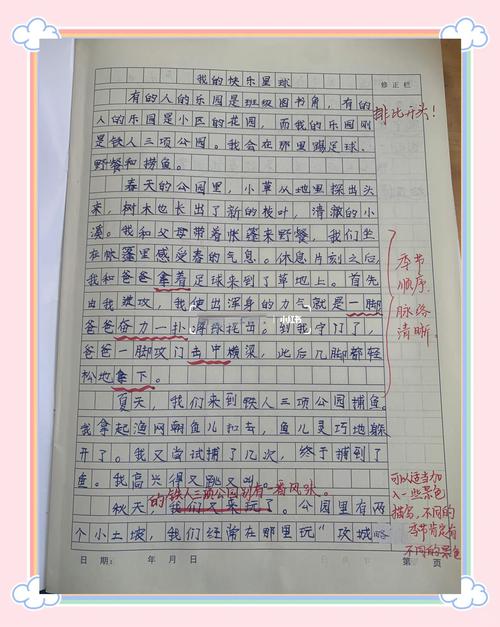 我的快乐星球
修正栏
有的人的乐园是班级图书角，有的
人的乐园是小区的花园，而我的乐园则
是铁人三项公园。我会在那里踢足球、
野餐和捞鱼。
排比开头！
春天的公园里，小草从地里探出头
来，树木也长出了新的枝叶，清澈的小
溪。我和父母带着帐篷来野餐，我们坐
在帐篷里感受春的气息。休息片刻之后，
我和爸爸拿着足球来到了草地上。首先
由我进攻，我使出浑身的力气就是一脚
爸爸奋力一扑
到我守门了，
爸爸一脚攻门击中横梁，此后几脚都轻
松地拿下。
季节
顺序，
脉络
清晰。
小红书
夏天，我们来到铁人三项公园捕鱼。
我拿起渔网朝鱼儿扣去，鱼儿灵巧地躲
开了。我又尝试捕了几次，终于捕到了
鱼。我高兴得又跳又叫。
的铁人三项公园别有一番风味。
秋天我们又来玩了。公园里有两
个小土坡，我们经常在那里玩“攻城略
可以适当加
入一些景色
描写，不同的
季节肯定有
不同的景色
日期： 年 月 日
第 页